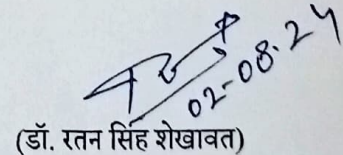 02-08-24
(डॉ. रतन सिंह शेखावत)